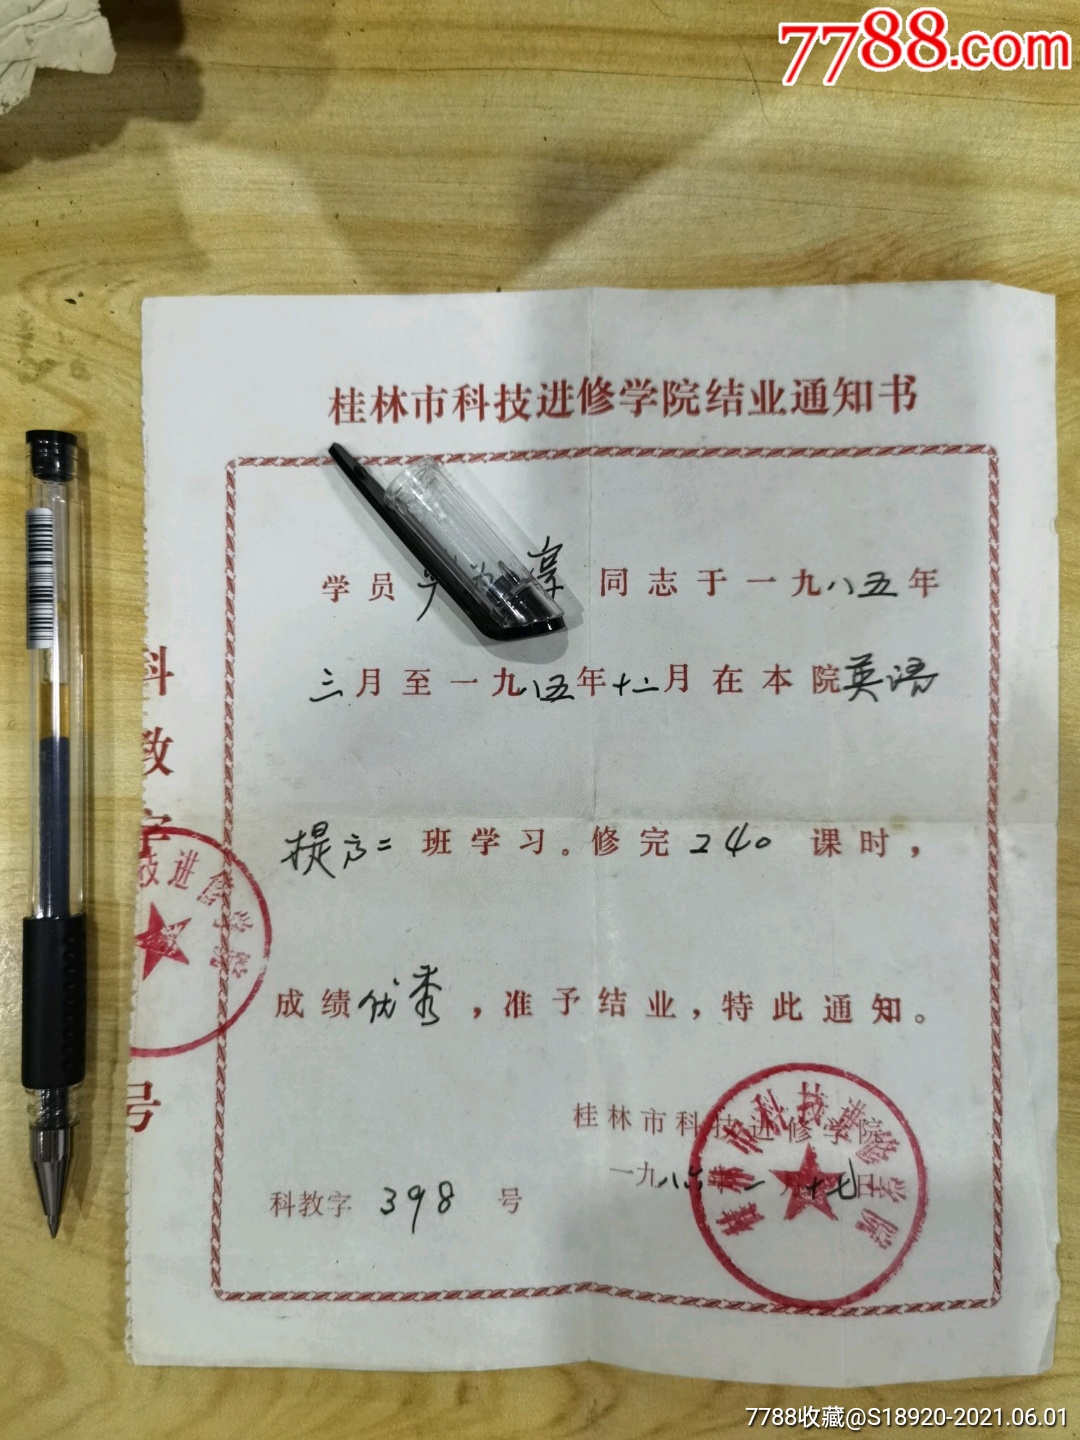 7788.com
桂林市科技进修学院结业通知书
学员 淳 同志于一九八五年
三月至一九八五年十二月在本院英语
提高二班学习。修完240课时，
成绩优秀，准予结业，特此通知。
桂林市科技进修学院
一九八六年一月十七日
科教字 398 号
科教字
号
技进修学院
桂林市科技进修学院
7788收藏@S18920-2021.06.01